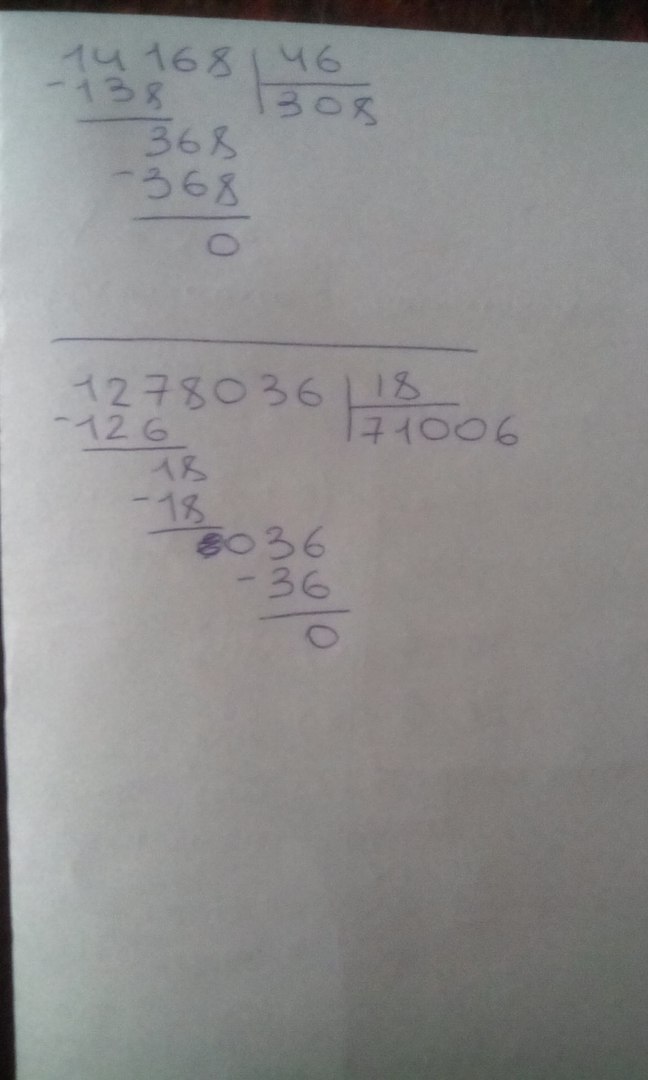 14168 46
-138 308
368
-368
0
1278036 18
-126 71006
18
-18
036
-36
0